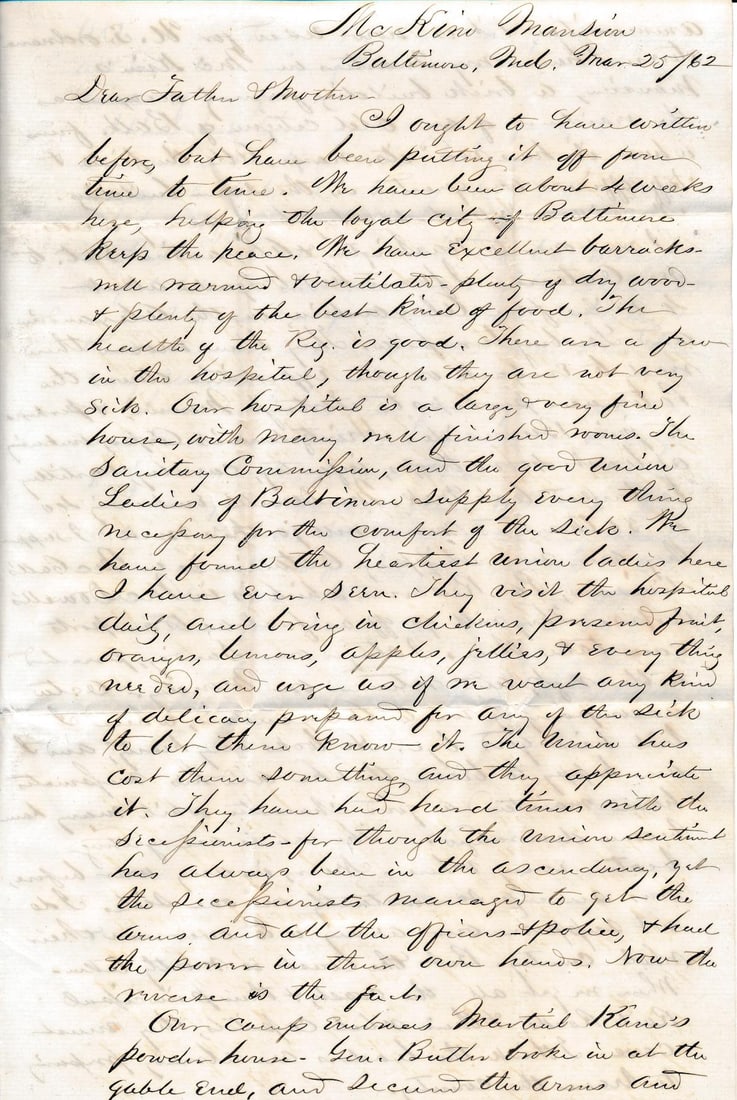 McKim Mansion
Baltimore, Md. Mar 25/62
Dear Father & Mother—
I ought to have written
before, but have been putting it off from
time to time. We have been about 4 weeks
here, helping the loyal city of Baltimore
keep the peace. We have excellent barracks—
well warmed & ventilated—plenty of dry wood—
& plenty of the best kind of food. The
health of the Reg. is good. There are a few
in the hospital, though they are not very
sick. Our hospital is a large & very fine
house, with many well finished rooms. The
Sanitary Commission, and the good Union
Ladies of Baltimore supply every thing
necessary for the comfort of the sick. We
have found the heartiest Union ladies here
I have ever seen. They visit the hospital
daily, and bring in chickens, preserved fruit,
oranges, lemons, apples, jellies, & every thing
needed, and urge us if we want any kind
of delicacy prepared for any of the sick
to let them know it. The Union has
cost them something, and they appreciate
it. They have had hard times with the
Secessionists—for though the Union sentiment
has always been in the ascendancy, yet
the Secessionists managed to get the
arms and all the officers & police, & had
the power in their own hands. Now the
reverse is the fact.
Our camp embraces Martial Kane's
powder house—Gen. Butler broke in at the
gable end, and secured the arms and